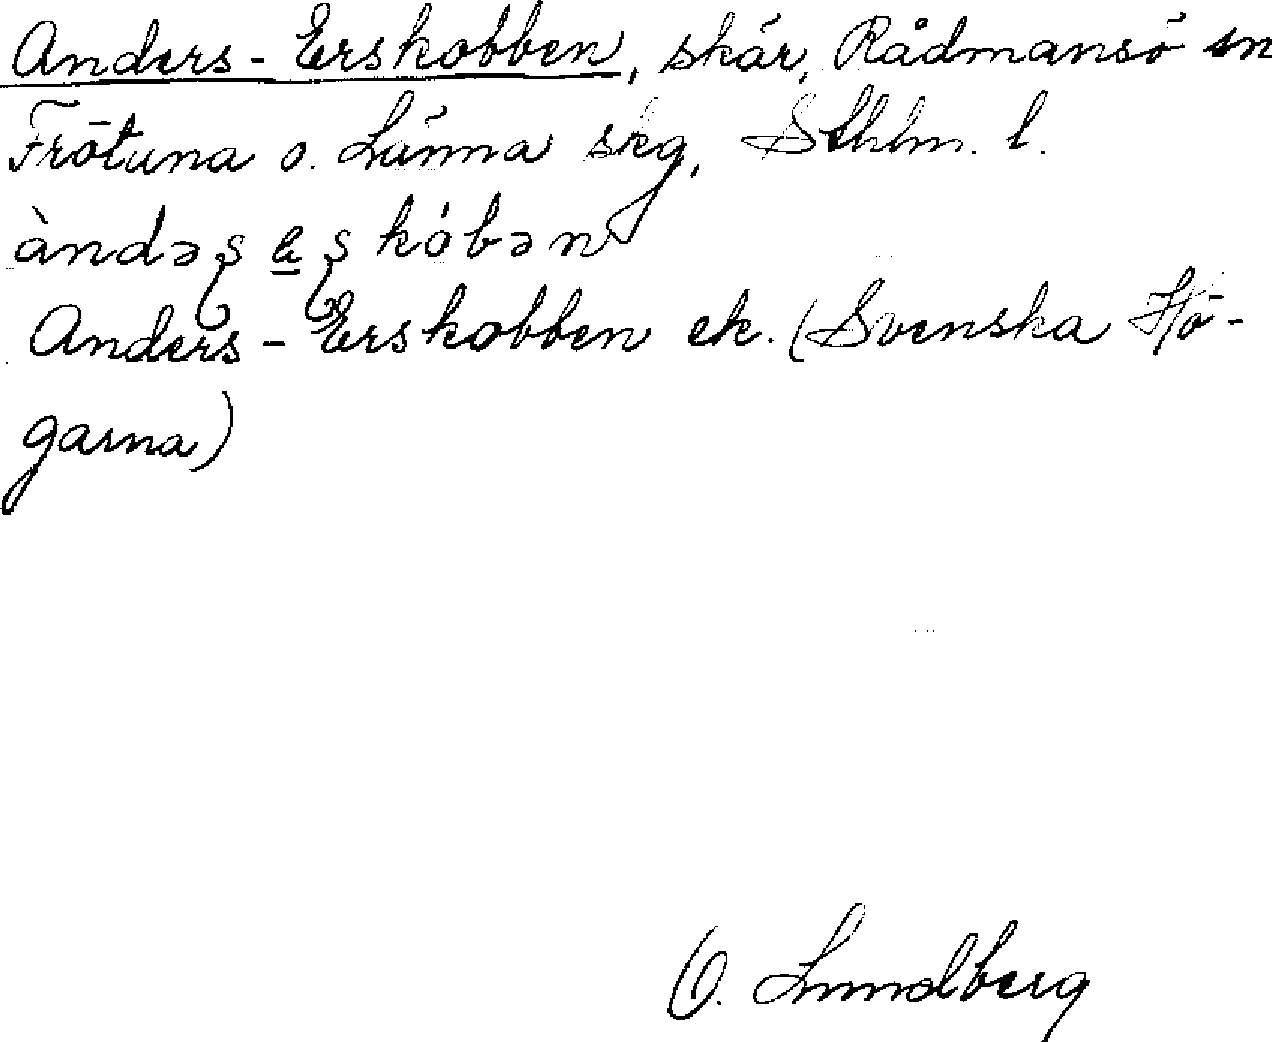 Anders-Erskobben, skär, Rådmansö sn
Frötuna o. Länna skg, Sthlm. l.
àndəʂ e̲ʂkóbən
Anders-Erskobben ek. (Svenska Hö-
garna)
O. Lundberg